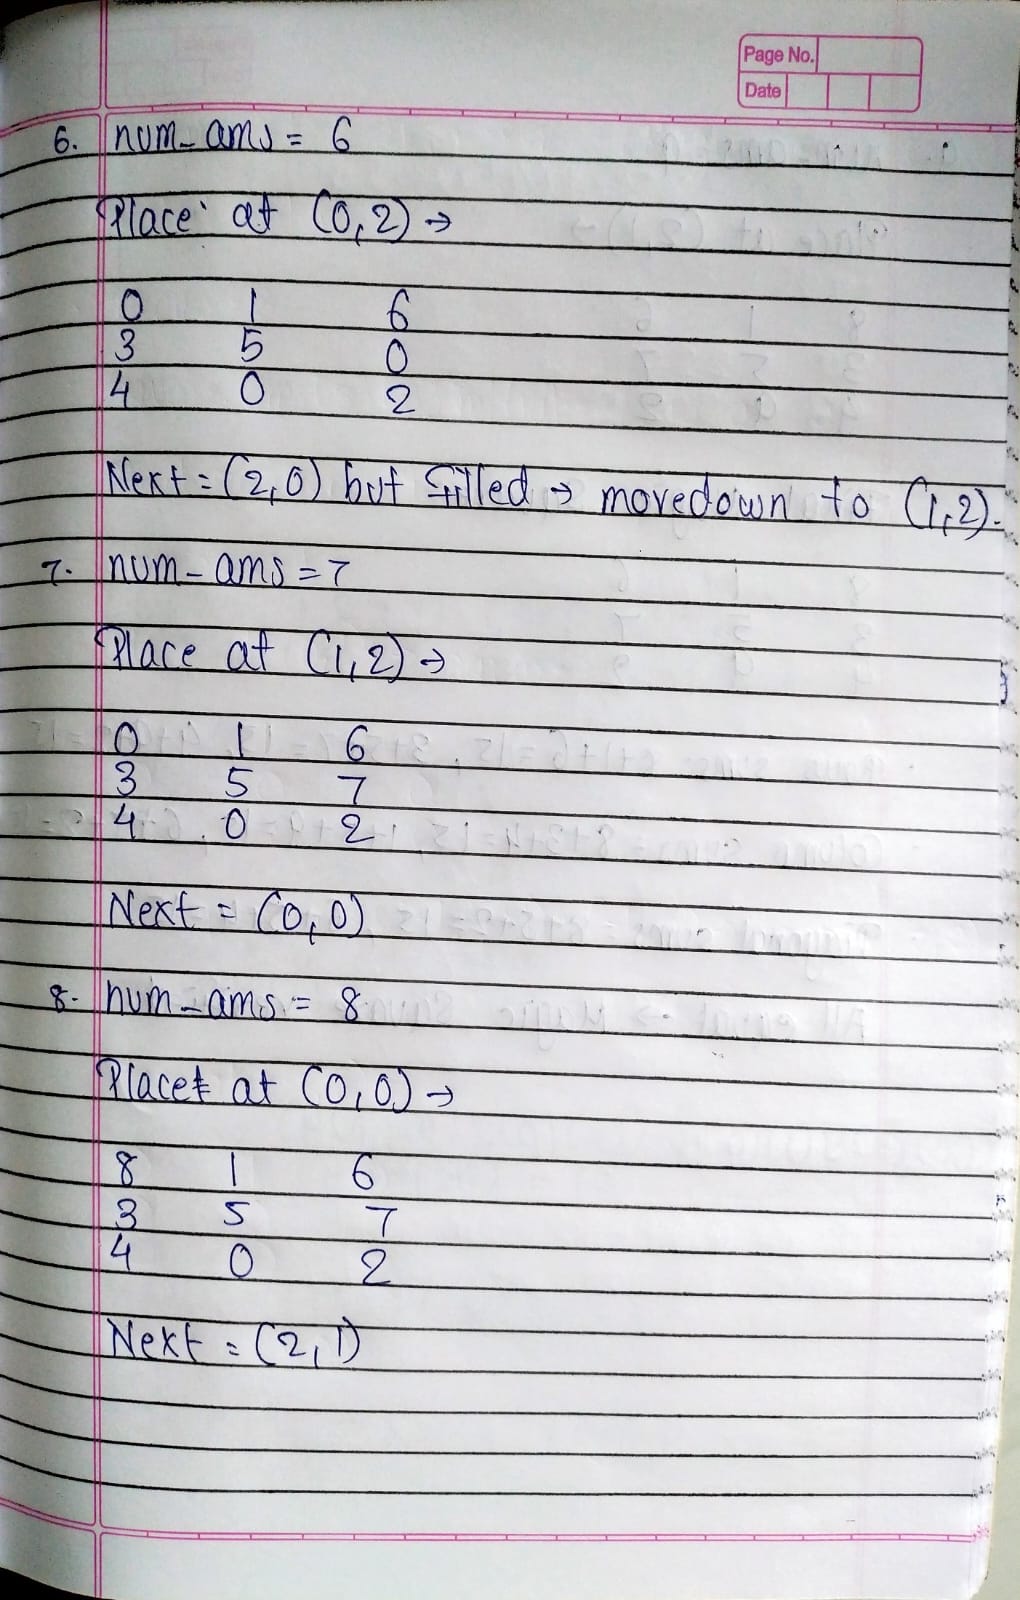 Page No.
Date
6. num_ams = 6
Place at (0,2) →
0 1 6
3 5 0
4 0 2
Next = (2,0) but filled → movedown to (1,2).
7. num_ams = 7
Place at (1,2) →
0 1 6
3 5 7
4 0 2
Next = (0,0)
8. num_ams = 8
Place at (0,0) →
8 1 6
3 5 7
4 0 2
Next = (2,1)